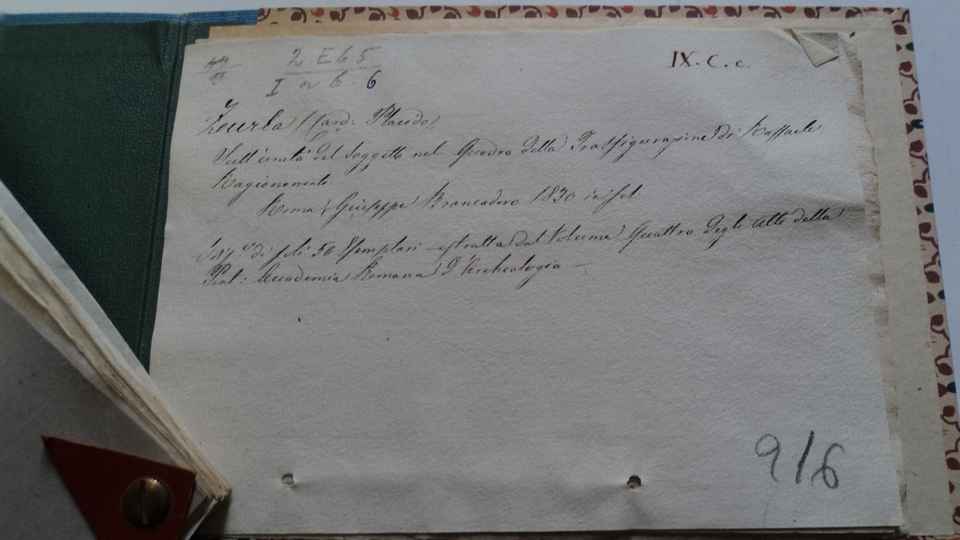 2 E 6 5
I a 6 6
IX. C. c.
Zurla (Card: Placido)
Sull'unità del soggetto nel Quadro della Trasfigurazione di Raffaele
Ragionamento
Roma Giuseppe Brancadoro 1830
di soli 50 Esemplari estratta dal Volume Quattro degli Atti della
Pont: Accademia Romana d'Archeologia —
916